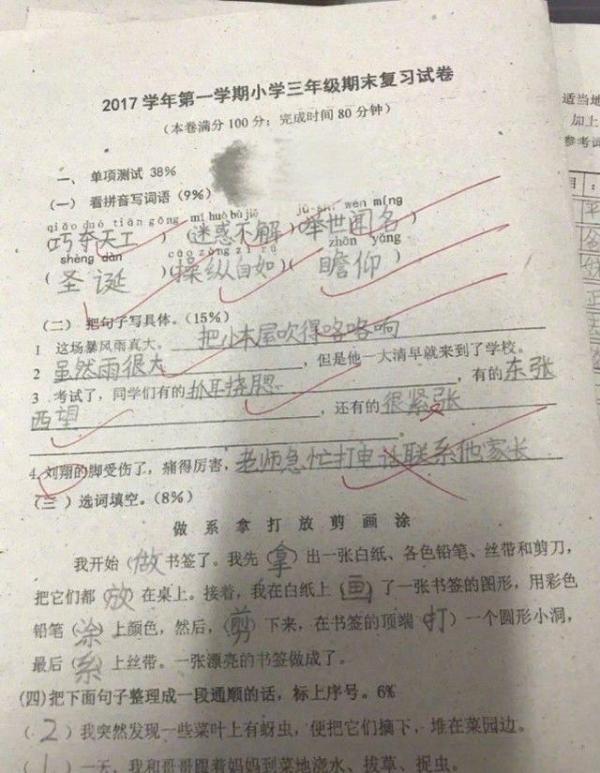 2017学年第一学期小学三年级期末复习试卷
(本卷满分100分;完成时间80分钟)
一、单项测试 38%
(一)看拼音写词语(9%)
qiǎo duó tiān gōng mí huò bù jiě jǔ shì wén míng
(巧夺天工)(迷惑不解)(举世闻名)
shèng dàn cāo zòng zì rú zhān yǎng
(圣诞)(操纵自如)(瞻仰)
(二)把句子写具体。(15%)
1 这场暴风雨真大。把小木屋吹得咯咯响
2 虽然雨很大,但是他一大清早就来到了学校。
3.考试了,同学们有的抓耳挠腮,有的东张
西望,还有的很紧张
4.刘翔的脚受伤了,痛得厉害,老师急忙打电话联系他家长
(三)选词填空。(8%)
做 系 拿 打 放 剪 画 涂
我开始(做)书签了。我先(拿)出一张白纸、各色铅笔、丝带和剪刀,
把它们都(放)在桌上。接着,我在白纸上(画)了一张书签的图形,用彩色
铅笔(涂)上颜色,然后,(剪)下来,在书签的顶端(打)一个圆形小洞,
最后(系)上丝带。一张漂亮的书签做成了。
(四)把下面句子整理成一段通顺的话,标上序号。6%
(2)我突然发现一些菜叶上有蚜虫,便把它们摘下,堆在菜园边。
(1)一天,我和哥哥跟着妈妈到菜地浇水、拔草、捉虫。
适当地
加上
参考词